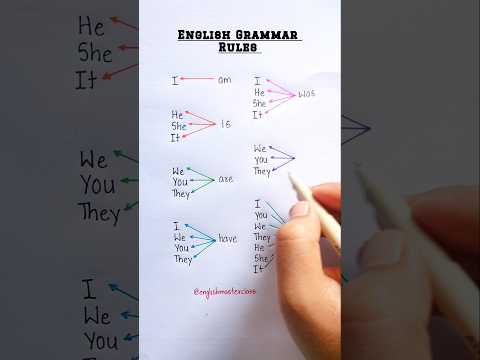 English Grammar
Rules
I am
He
She is
It
We
You are
They
I
We have
You
They
I
He
She was
It
We
you
They
I
You
We
They
He
She
It
@englishmasterclass
He
She
It
We
You
They
I
We
You